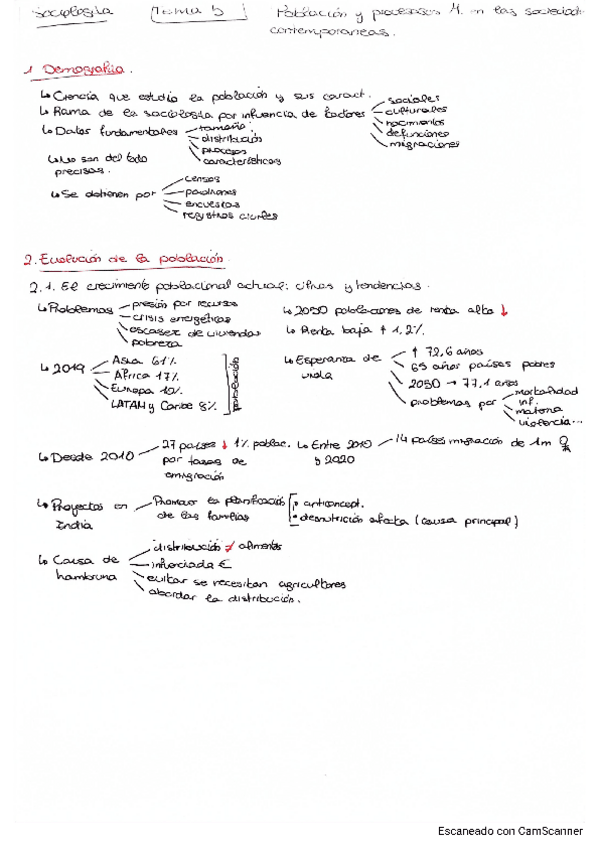 Sociología Tema 5 Población y procesos M. en las sociedad
contemporaneas.
1 Demografía.
↳ Ciencia que estudia la población y sus caract.
↳ Rama de la sociología por influencia de factores
sociales
culturales
nacimientos
defunciones
migraciones
↳ Datos fundamentales
tamaño
distribución
procesos
características
↳ No son del todo
precisos.
↳ Se obtienen por
censos
padrones
encuestas
registros civiles
2. Evolución de la población.
2.1. El crecimiento poblacional actual: cifras y tendencias.
↳ Problemas
presión por recursos
crisis energéticas
escasez de viviendas
pobreza
↳ 2050 poblaciones de renta alta ↓
↳ Renta baja ↑ 1,2%.
↳ 2019
Asia 61%
África 17%
Europa 10%
LATAM y Caribe 8%
población
↳ Esperanza de
vida
↑ 72,6 años
65 años países pobres
2050 → 77,1 años
problemas por
mortalidad
inf.
materna
violencia...
↳ Desde 2010
27 países ↓ 1% poblac.
por tasas de
emigración
↳ Entre 2010
y 2020
14 países migración de 1m
↳ Proyectos en
India
Promover la planificación
de las familias
• anticoncept.
• desnutrición afecta (causa principal)
↳ Causa de
hambruna
distribución ≠ alimentos
inflenciada €
evitar se necesitan agricultores
abordar la distribución.
Escaneado con CamScanner